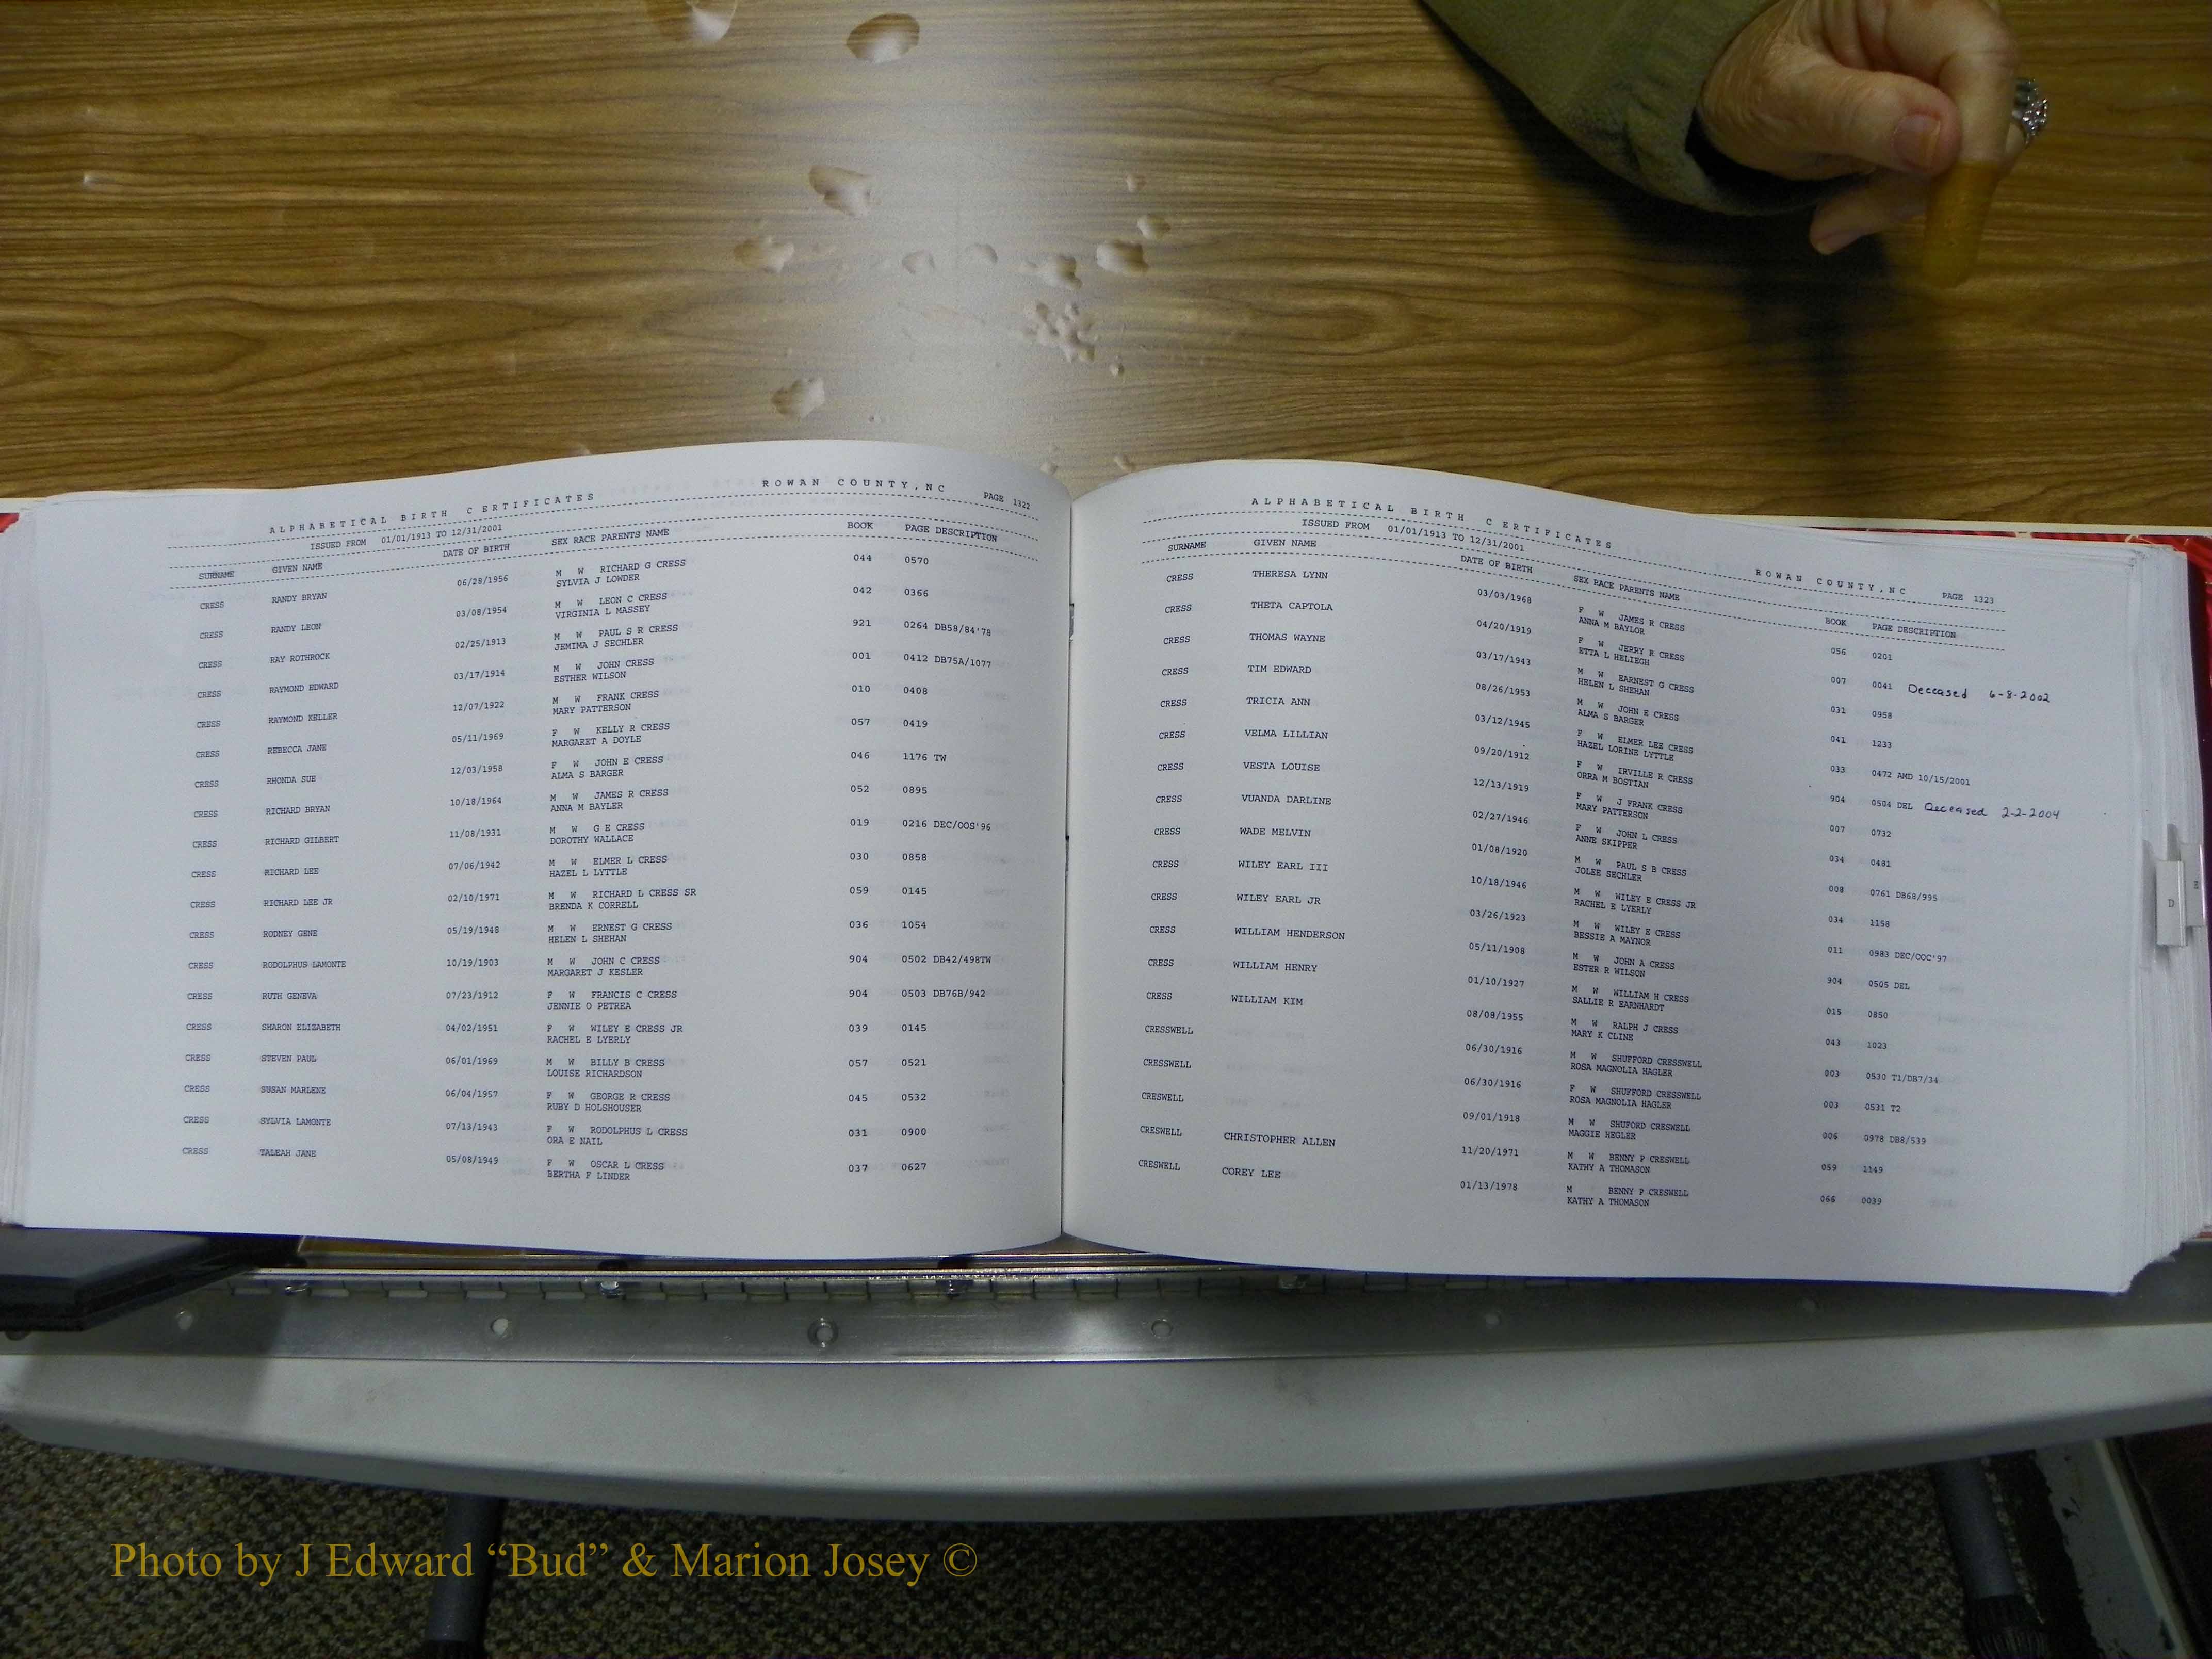 ALPHABETICAL BIRTH CERTIFICATES ROWAN COUNTY, NC PAGE 1322
ISSUED FROM 01/01/1913 TO 12/31/2001
SURNAME GIVEN NAME DATE OF BIRTH SEX RACE PARENTS NAME BOOK PAGE DESCRIPTION
CRESS RANDY BRYAN 06/28/1956 M W RICHARD G CRESS 044 0570
SYLVIA J LOWDER
CRESS RANDY LEON 03/08/1954 M W LEON C CRESS 042 0366
VIRGINIA L MASSEY
CRESS RAY ROTHROCK 02/25/1913 M W PAUL S R CRESS 921 0264 DB58/84'78
JEMIMA J SECHLER
CRESS RAYMOND EDWARD 03/17/1914 M W JOHN CRESS 001 0412 DB75A/1077
ESTHER WILSON
CRESS RAYMOND KELLER 12/07/1922 M W FRANK CRESS 010 0408
MARY PATTERSON
CRESS REBECCA JANE 05/11/1969 F W KELLY R CRESS 057 0419
MARGARET A DOYLE
CRESS RHONDA SUE 12/03/1958 F W JOHN E CRESS 046 1176 TW
ALMA S BARGER
CRESS RICHARD BRYAN 10/18/1964 M W JAMES R CRESS 052 0895
ANNA M BAYLER
CRESS RICHARD GILBERT 11/08/1931 M W G E CRESS 019 0216 DEC/OOS'96
DOROTHY WALLACE
CRESS RICHARD LEE 07/06/1942 M W ELMER L CRESS 030 0858
HAZEL L LYTTLE
CRESS RICHARD LEE JR 02/10/1971 M W RICHARD L CRESS SR 059 0145
BRENDA K CORRELL
CRESS RODNEY GENE 05/19/1948 M W ERNEST G CRESS 036 1054
HELEN L SHEHAN
CRESS RODOLPHUS LAMONTE 10/19/1903 M W JOHN C CRESS 904 0502 DB42/498TW
MARGARET J KESLER
CRESS RUTH GENEVA 07/23/1912 F W FRANCIS C CRESS 904 0503 DB76B/942
JENNIE O PETREA
CRESS SHARON ELIZABETH 04/02/1951 F W WILEY E CRESS JR 039 0145
RACHEL E LYERLY
CRESS STEVEN PAUL 06/01/1969 M W BILLY B CRESS 057 0521
LOUISE RICHARDSON
CRESS SUSAN MARLENE 06/04/1957 F W GEORGE R CRESS 045 0532
RUBY D HOLSHOUSER
CRESS SYLVIA LAMONTE 07/13/1943 F W RODOLPHUS L CRESS 031 0900
ORA E NAIL
CRESS TALEAH JANE 05/08/1949 F W OSCAR L CRESS 037 0627
BERTHA F LINDER
ALPHABETICAL BIRTH CERTIFICATES ROWAN COUNTY, NC PAGE 1323
ISSUED FROM 01/01/1913 TO 12/31/2001
SURNAME GIVEN NAME DATE OF BIRTH SEX RACE PARENTS NAME BOOK PAGE DESCRIPTION
CRESS THERESA LYNN 03/03/1968 F W JAMES R CRESS 056 0201
ANNA M BAYLOR
CRESS THETA CAPTOLA 04/20/1919 F W JERRY R CRESS 007 0041 Deceased 6-8-2002
ETTA L HELIEGH
CRESS THOMAS WAYNE 03/17/1943 M W EARNEST G CRESS 031 0958
HELEN L SHEHAN
CRESS TIM EDWARD 08/26/1953 M W JOHN E CRESS 041 1233
ALMA S BARGER
CRESS TRICIA ANN 03/12/1945 F W ELMER LEE CRESS 033 0472 AMD 10/15/2001
HAZEL LORINE LYTTLE
CRESS VELMA LILLIAN 09/20/1912 F W IRVILLE R CRESS 904 0504 DEL Deceased 2-2-2004
ORRA M BOSTIAN
CRESS VESTA LOUISE 12/13/1919 F W J FRANK CRESS 007 0732
MARY PATTERSON
CRESS VUANDA DARLINE 02/27/1946 F W JOHN L CRESS 034 0481
ANNE SKIPPER
CRESS WADE MELVIN 01/08/1920 M W PAUL S B CRESS 008 0761 DB68/995
JOLEE SECHLER
CRESS WILEY EARL III 10/18/1946 M W WILEY E CRESS JR 034 1158
RACHEL E LYERLY
CRESS WILEY EARL JR 03/26/1923 M W WILEY E CRESS 011 0983 DEC/OOC'97
BESSIE A MAYNOR
CRESS WILLIAM HENDERSON 05/11/1908 M W JOHN A CRESS 904 0505 DEL
ESTER R WILSON
CRESS WILLIAM HENRY 01/10/1927 M W WILLIAM H CRESS 015 0850
SALLIE R EARNHARDT
CRESS WILLIAM KIM 08/08/1955 M W RALPH J CRESS 043 1023
MARY K CLINE
CRESSWELL 06/30/1916 M W SHUFFORD CRESSWELL 003 0530 T1/DB7/34
ROSA MAGNOLIA HAGLER
CRESSWELL 06/30/1916 F W SHUFFORD CRESSWELL 003 0531 T2
ROSA MAGNOLIA HAGLER
CRESWELL 09/01/1918 M W SHUFORD CRESWELL 006 0978 DB8/539
MAGGIE HEGLER
CRESWELL CHRISTOPHER ALLEN 11/20/1971 M W BENNY P CRESWELL 059 1149
KATHY A THOMASON
CRESWELL COREY LEE 01/13/1978 M BENNY P CRESWELL 066 0039
KATHY A THOMASON
D
Photo by J Edward “Bud” & Marion Josey ©